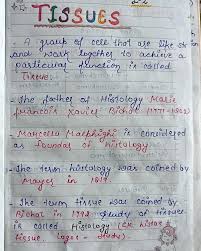 TISSUES
A group of cell that are like st
and work together to achieve a
particular function is called
Tissue.
- The father of Histology Marie
Francois Xavier Bichat (1771-1802)
- Marcello Malphighi is considered
as founder of histology
- The term histology was coined by
Mayer in 1819.
- The term tissue was coined by
Bichat in 1792 study of tissue
is called Histology (GK histo =
tissue, logos - study)